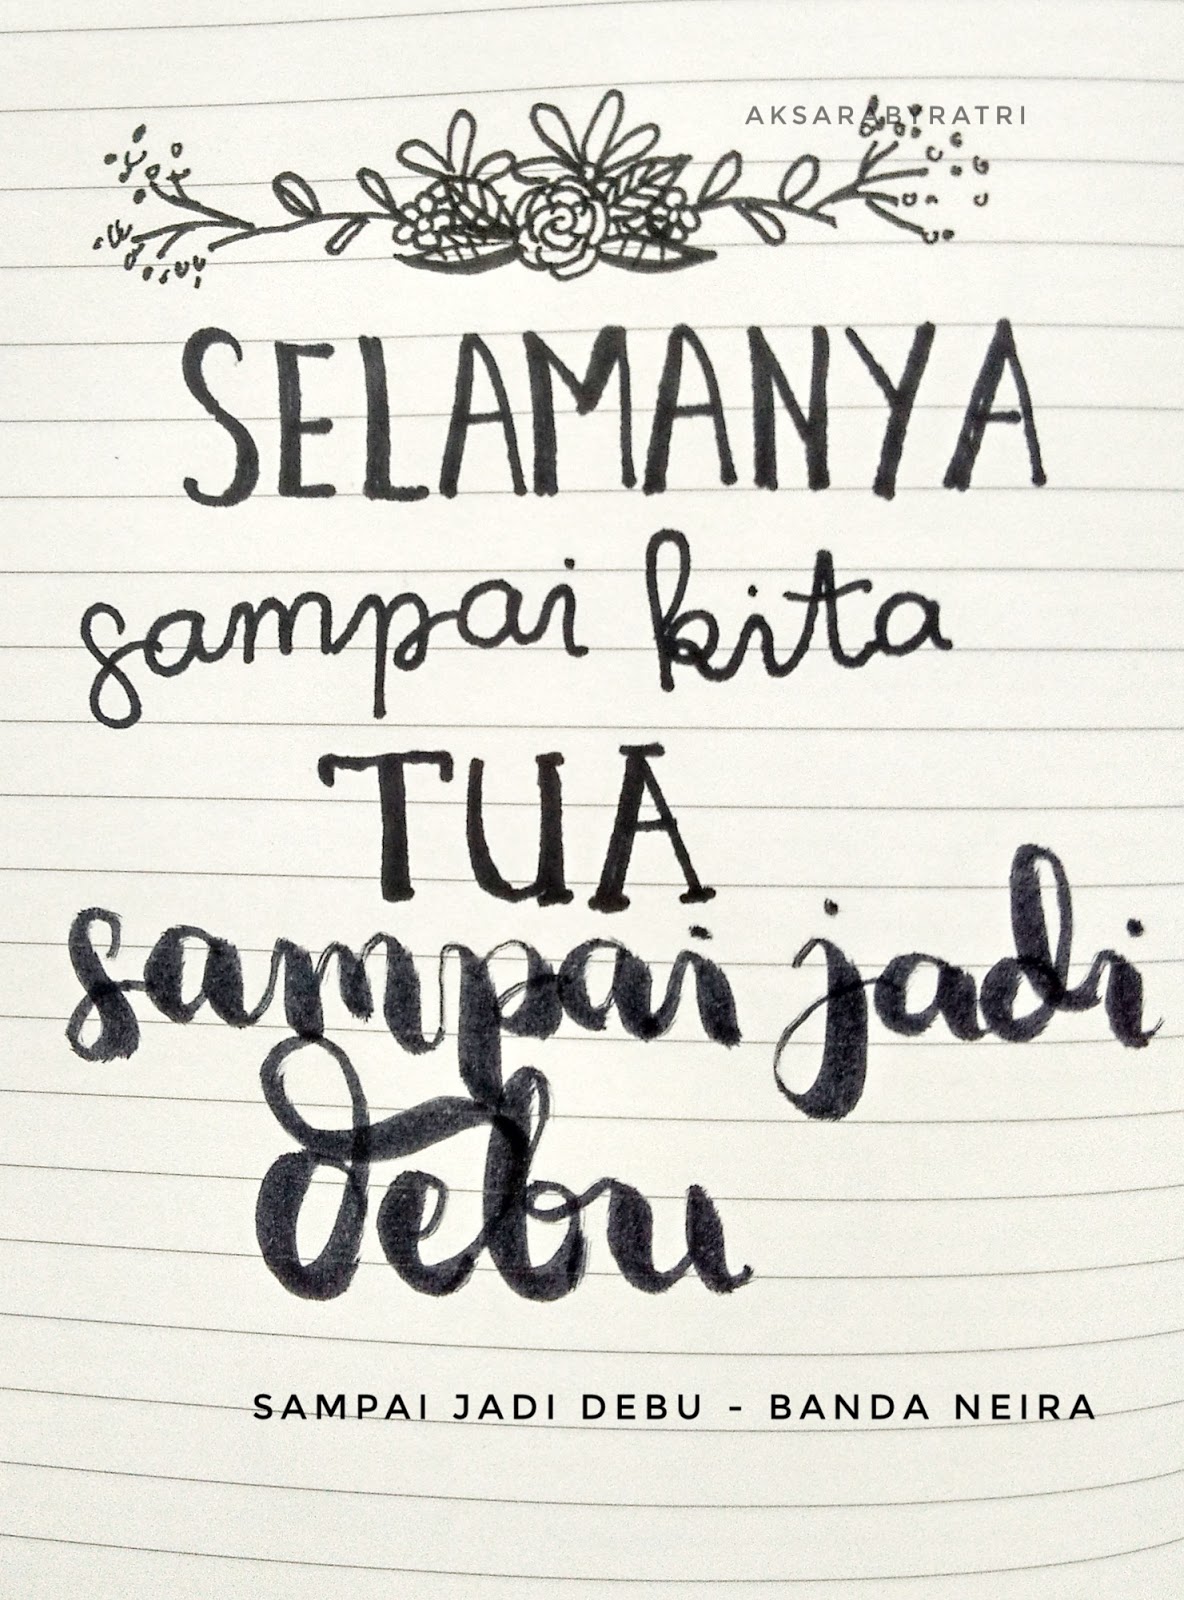 AKSARABYRATRI
SELAMANYA
sampai kita
TUA
sampai jadi
debu
SAMPAI JADI DEBU - BANDA NEIRA